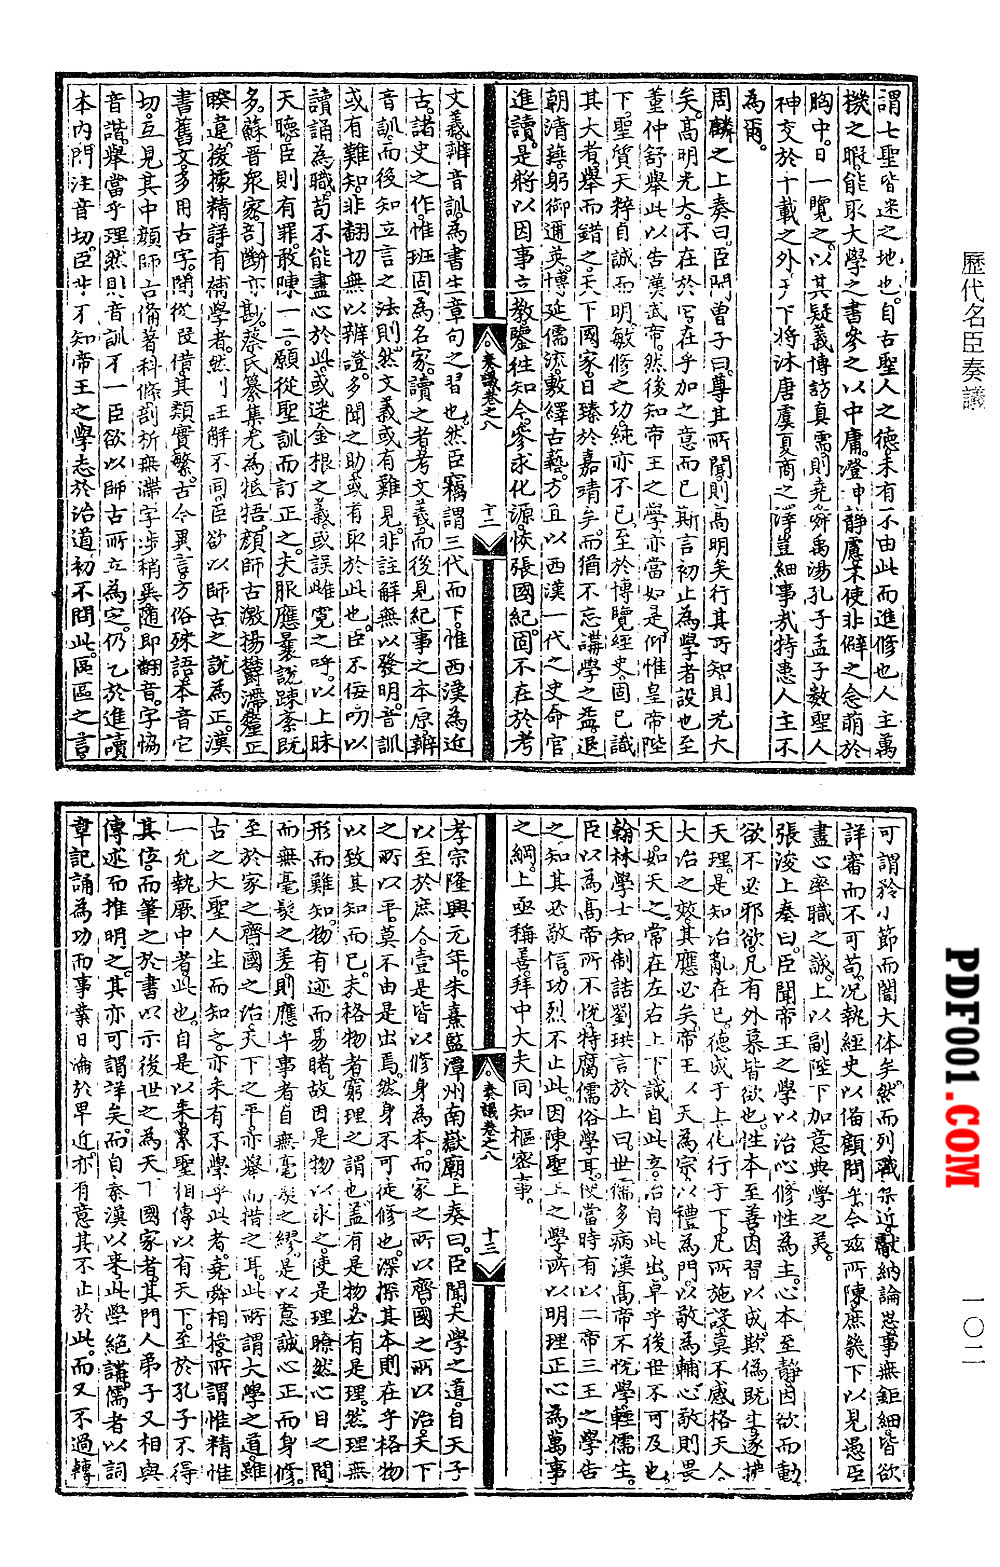 歷代名臣奏議
一〇二
謂七聖皆迷之地也。自古聖人之德。未有不由此而進修也。人主萬
機之暇。能取大學之書。參之以中庸。澄神靜慮。不使非僻之念萌於
胸中。日一覽之。以其疑義博訪真儒。則堯舜禹湯孔子孟子數聖人
神交於千載之外。天下將沐唐虞夏商之澤。豈細事哉。特患人主不
為爾。
周麟之上奏曰。臣聞曾子曰。尊其所聞。則高明矣。行其所知。則光大
矣。高明光大。不在於它。在乎加之意而已。斯言初止為學者設也。至
董仲舒舉此以告漢武帝。然後知帝王之學亦當如是。仰惟皇帝陛
下。聖質天粹。自誠而明。敏修之功。純亦不已。至於博覽經史。固已識
其大者。舉而錯之。天下國家。日臻於嘉靖矣。而猶不忘講學之益。退
朝清燕。躬御邇英。博延儒流。敷繹古藝。方且以西漢一代之史。命官
進讀。是將以因事立教。鑒往知今。參求化源。恢張國紀。固不在於考
奏議卷之八
十二
文義。辨音訓。為書生章句之習也。然臣竊謂三代而下。惟西漢為近
古。諸史之作。惟班固為名家。讀之者。考文義而後見紀事之本原。辨
音訓。而後知立言之法則。然文義或有難見。非註解無以發明。音訓
或有難知。非翻切無以辨證。多聞之助。或有取於此也。臣不佞。叨以
讀誦為職。苟不能盡心於此。或迷金根之義。或誤雌霓之呼。以上昧
天聽。臣則有罪。敢陳一二。願從聖訓而訂正之。夫服應曩說。疎紊既
多。蘇晉眾家。剖斷亦尠。蔡氏纂集。尤為牴牾。顏師古激揚鬱滯。釐正
暌違。援據精詳。有補學者。然則註解不同。臣欲以師古之說為正。漢
書舊文。多用古字。閒從叚借。其類實繁。古今異言。方俗殊語。本音它
切。互見其中。顏師古備著科條。剖析無滯。字涉稍異。隨即翻音。字協
音諧。舉當乎理。然則音訓不一。臣欲以師古所立為定。仍乞於進讀
本內。閒注音切。臣才不知帝王之學。志於治道。初不問此。區區之言
可謂矜小節而闇大体矣。然而列職邇近。獻納論思。事無鉅細。皆欲
詳審而不可苟。况執經史以備顧問乎。今茲所陳。庶幾下以見愚臣
盡心率職之誠。上以副陛下加意典學之美。
張浚上奏曰。臣聞帝王之學。以治心修性為主。心本至靜。因欲而動。
欲不必邪欲。凡有外慕皆欲也。性本至善。因習以成。欺偽既生。遂擴
天理。是知治亂在己。德成于上。化行于下。凡所施設。莫不感格天人。
大治之效。其應必矣。帝王以天為宗。以禮為門。以敬為輔。心敬則畏
天。如天之常在左右上下。誠自此立。治自此出。卓乎後世不可及也。
翰林學士知制誥劉珙言於上曰。世儒多病漢高帝不悅學。輕儒生。
臣以為高帝所不悅。特腐儒俗學耳。使當時有以二帝三王之學告
之。知其必敬信。功烈不止此。因陳聖王之學。所以明理正心。為萬事
之綱。上亟稱善。拜中大夫同知樞密事。
奏議卷之八
十三
孝宗隆興元年。朱熹監潭州南嶽廟。上奏曰。臣聞大學之道。自天子
以至於庶人。壹是皆以修身為本。而家之所以齊。國之所以治。天下
之所以平。莫不由是出焉。然身不可徒修也。深探其本。則在乎格物
以致其知而已。夫格物者。窮理之謂也。蓋有是物必有是理。然理無
形而難知。物有迹而易睹。故因是物以求之。使是理瞭然心目之間
而無毫髮之差。則應乎事者自無毫髮之繆。是以意誠心正而身修。
至於家之齊。國之治。天下之平。亦舉而措之耳。此所謂大學之道。雖
古之大聖人生而知之。亦未有不學乎此者。堯舜相授。所謂惟精惟
一。允執厥中者。此也。自是以來。累聖相傳。以有天下。至於孔子。不得
其位。而筆之於書。以示後世之為天下國家者。其門人弟子。又相與
傳述而推明之。其亦可謂詳矣。而自秦漢以來。此學絕講。儒者以詞
章記誦為功。而事業日淪於卑近。亦有意其不止於此。而又不過轉
PDF001.COM